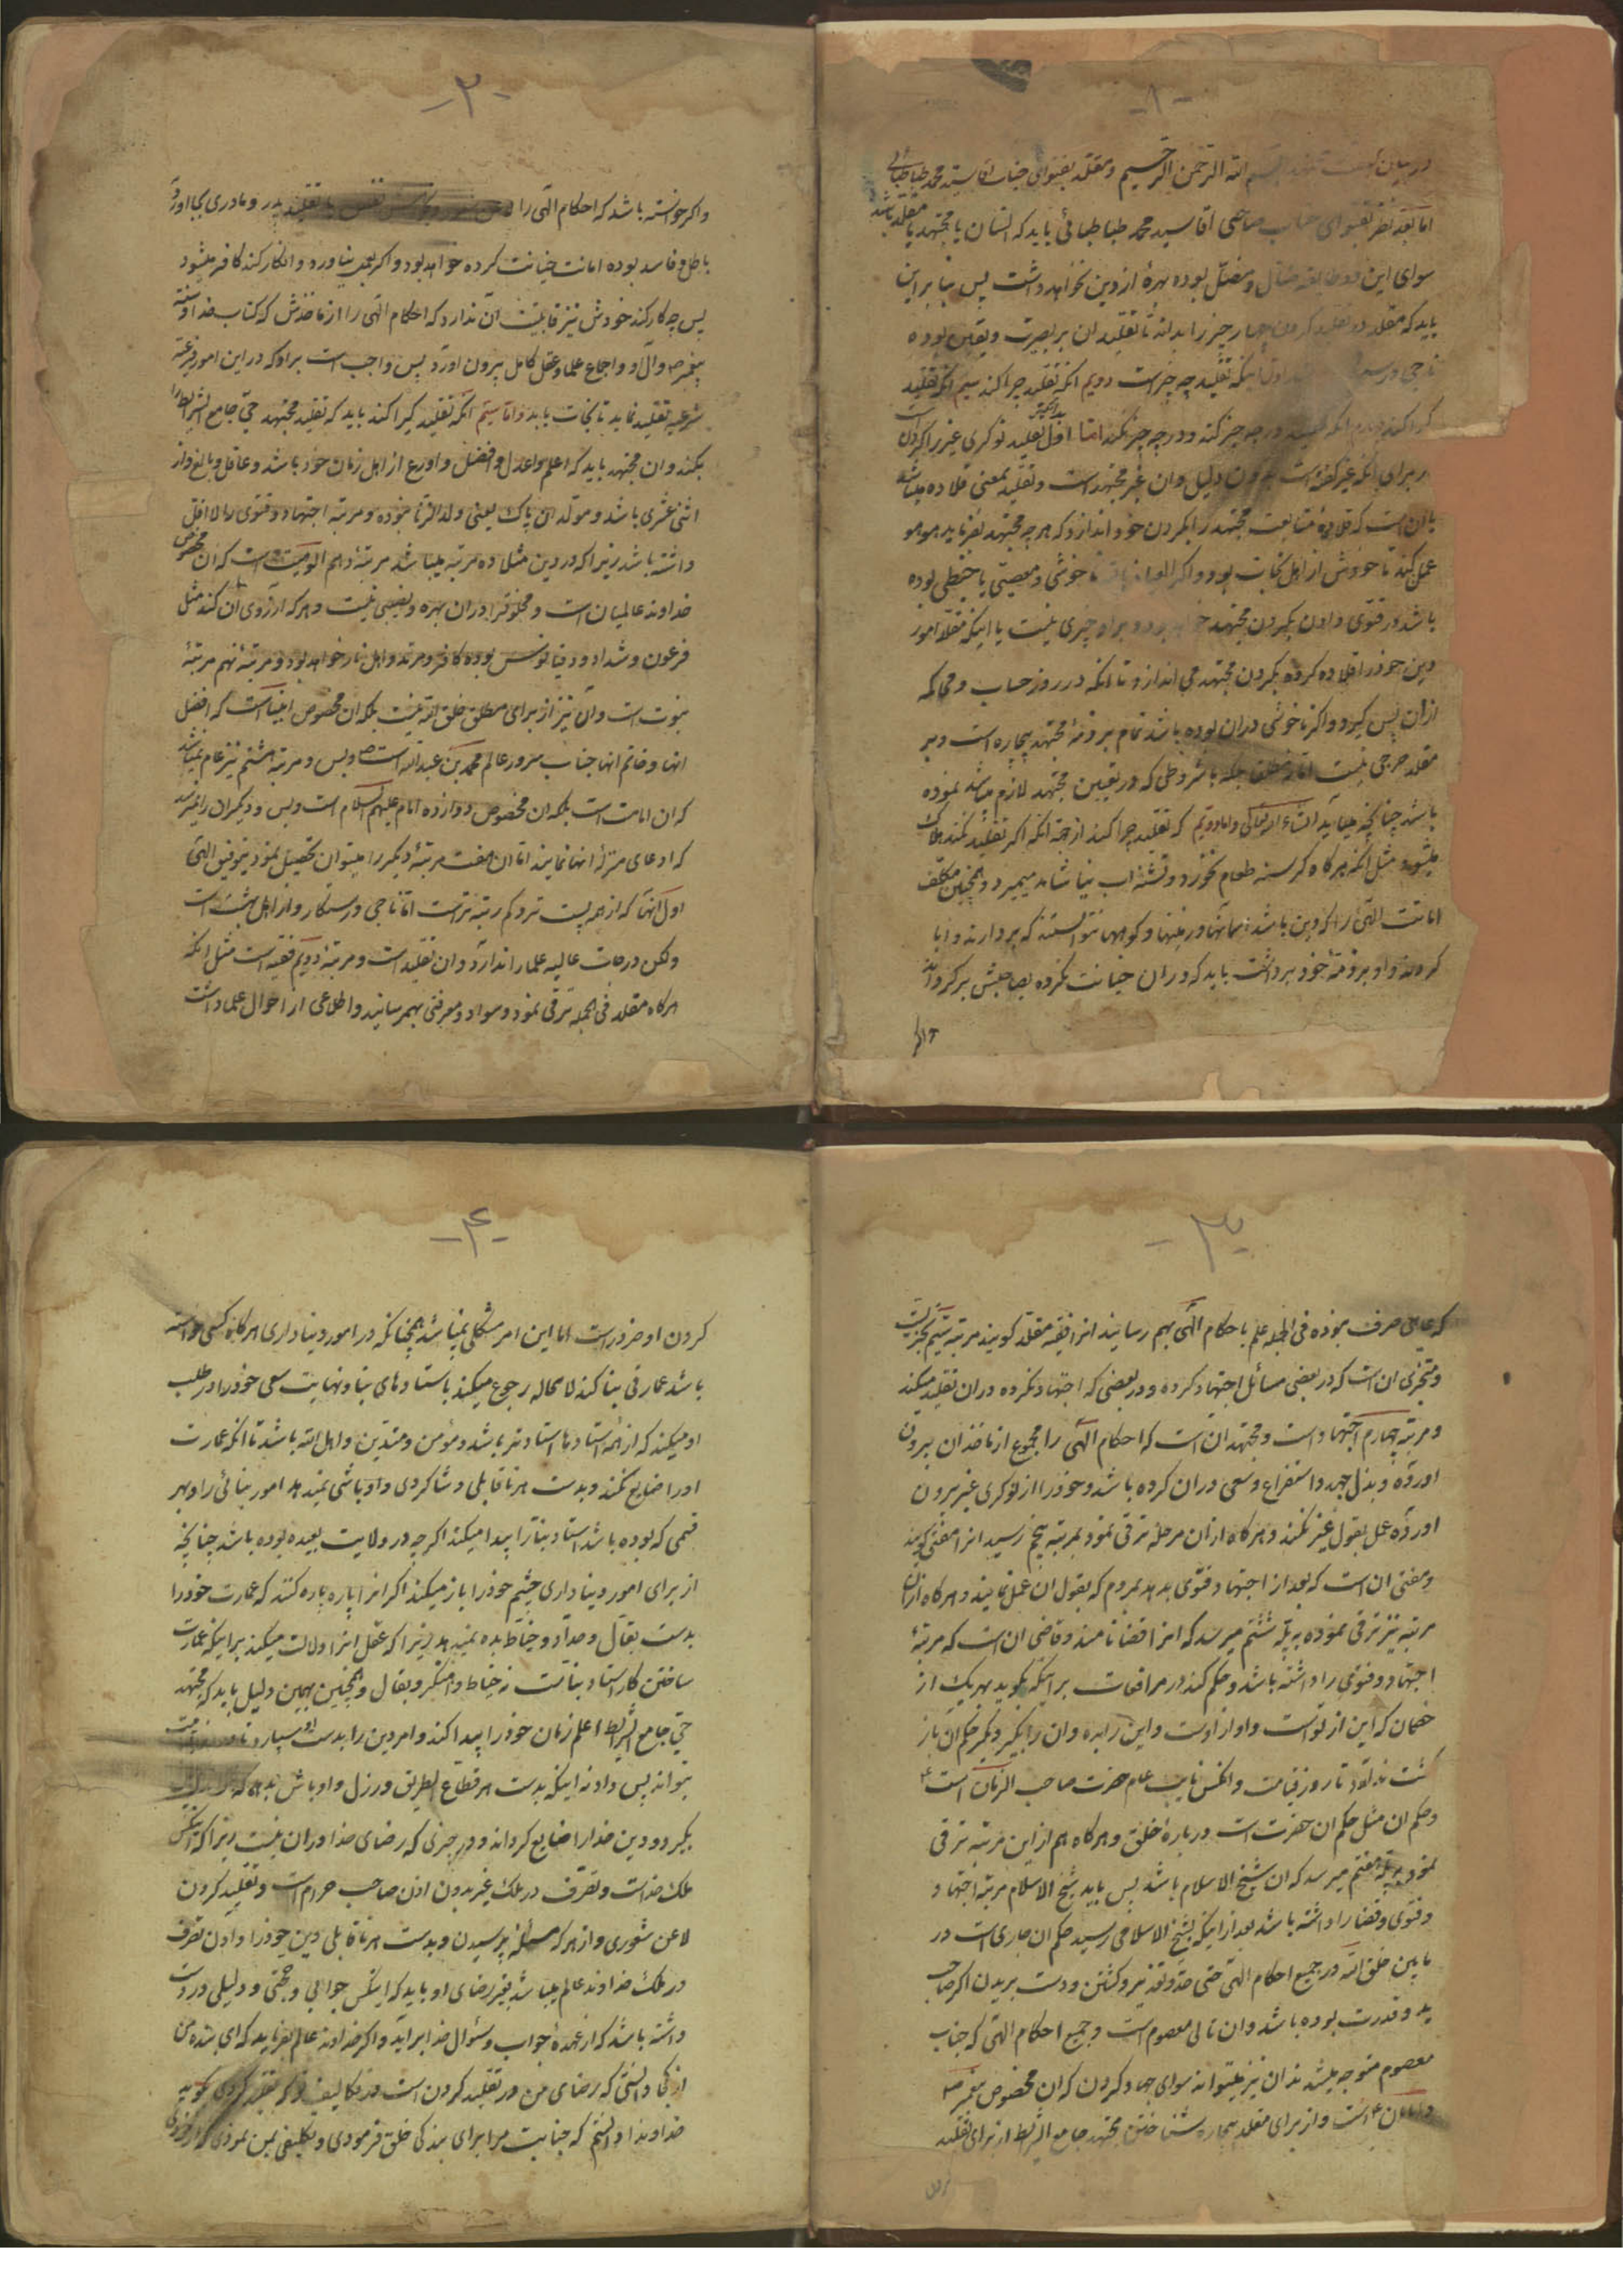 -۱-
در بیان الله الرحمن الرحیم ومقلد بفتوای جناب اقا سید محمد طباطبائی
اما بعد نظر بفتوای جناب صاحبی اقا سید محمد طباطبائی باید که انسان یا مجتهد یا مقلد باشد
سوای این دو طایفه ضال ومضل بوده بهرهٔ از دین نخواهد داشت پس بنا براین
باید که مقلد در تقلید کردن چهار چیز را بداند تا تقلید ان بر بصیرت ویقین بوده
ناجی ورستکار اول اینکه تقلید چه چیز است دویم انکه تقلید چرا کند سیم انکه تقلید
که را کند در چه چیز کند ودر چه چیز نکند اما اول تقلید نوکری غیر را کردن است
بدانکه
از برای انکه غیر گفته است بدون دلیل وان غیر مجتهد است وتقلید بمعنی قلاده میباشد
یا ان است که قلادهٔ متابعت مجتهد را بگردن خود اندازد که هر چه مجتهد بفرماید موبمو
عمل کند تا خودش از اهل نجات بود واکر ناخوشی ومعصیتی یا خبطی بوده
باشد در فتوی دادن بگردن مجتهد بود وبراو چیزی نیست یا اینکه مقلد امور
دین خود را قلاده کرده بگردن مجتهد می اندازد تا انکه در روز حساب ومحاکمه
از ان پس گیرد واکر ناخوشی در ان بوده باشد تمام بر ذمهٔ مجتهد بیچاره است وبر
مقلد حرجی نیست اما نه مطلق بلکه با شروطی که در تعیین مجتهد لازم میباشد نموده
باشد چنانچه میاید انشاء الله تعالی واما دویم که تقلید چرا کند از جهة انکه اکر تقلید نکند هلاک
میشود مثل انکه هرکاه کرسنه طعام نخورد وتشنه اب نیاشامد میمیرد وهمچنین مکلف
امانت الهی را که دین باشد اسمانها وزمینها وکوهها نتوانستند که بردارند وابا
کردند واو بر ذمهٔ خود برداشت باید که در ان خیانت نکرده بصاحبش برکرداند
واکر
-۲-
واکر خواسته باشد که احکام الهی را تقلید پدر ومادری بجا اورد
باطل وفاسد بوده امانت خیانت کرده خواهد بود واکر بعمل نیاورد وانکار کند کافر میشود
پس چه کار کند خودش نیز قابلیت آن ندارد که احکام الهی را از ماخذش که کتاب خدا وسنة
پیغمبر ص وآل او واجماع علما وعقل کامل بیرون اورد پس واجب است بر او که در این امور فرعیهٔ
شرعیه تقلید نماید تا نجات یابد واما سیم انکه تقلید کیرا کند باید که تقلید مجتهد حیّ جامع الشرایط را
بکند وان مجتهد باید که اعلم واعدل وافضل واورع از اهل زمان خود باشد وعاقل وبالغ واز
اثنی عشری باشد ومولد ان پاک یعنی ولد الزنا نبوده ومرتبهٔ اجتهاد وفتوی را لا اقل
داشته باشد زیرا که در دین مثلا ده مرتبه میباشد مرتبهٔ دهم الوهیت است که ان مخصوص
خداوند عالمیان است ومخلوقرا در ان بهره ونصیبی نیست وهرکه ارزوی آن کند مثل
فرعون وشداد ودقیانوس بوده کافر ومرتد واهل نار خواهد بود ومرتبهٔ نهم مرتبهٔ
نبوت است وآن نیز از برای مطلق خلق الله نیست بلکه ان مخصوص انبیا است که افضل
انها وخاتم انها جناب سرور عالم محمد بن عبدالله است ص وبس ومرتبهٔ هشتم نیز عام نمیباشد
که ان امامت است بلکه ان مخصوص دوازده امام علیهم السلام است وبس ودیکران را نمیرسد
که ادعای منزلهٔ انها نمایند اما ان هفت مرتبهٔ دیکر را میتوان تحصیل نمود بتوفیق الهی
اول انها که از همه پست تر وکم رتبه تر است اما ناجی ورستکار واز اهل بهشت است
ولکن درجات عالیهٔ علما را ندارد وان تقلید است ومرتبهٔ دویم فقیه است مثل انکه
هرکاه مقلد فی الجمله ترقی نمود وسواد ومعرفتی بهمرسانید واطلاعی از احوال علما داشت
-۳-
که عامی صرف نبوده فی الجمله علم باحکام الهی بهم رسانید انرا فقیه مقلد کویند مرتبهٔ سیم تجزیست
ومتجزی ان است که در بعضی مسائل اجتهاد کرده ودر بعضی که اجتهاد نکرده در ان تقلید میکند
ومرتبهٔ چهارم اجتهاد است ومجتهد ان است که احکام الهی را مجموع از ماخذ ان بیرون
اورده وبذل جهد واستفراغ وسعی در ان کرده باشد وخود را از نوکری غیر بیرون
اورده عمل بقول غیر نکند وهرکاه از ان مرحله ترقی نمود بمرتبهٔ پنجم رسید انرا مفتی کویند
ومفتی ان است که بعد از اجتهاد فتوی بدهد بمردم که بقول ان عمل نمایند وهرکاه از ان
مرتبه نیز ترقی نموده بمرتبهٔ ششم میرسد که انرا قضا نامند وقاضی ان است که مرتبهٔ
اجتهاد وفتوی را داشته باشد وحکم کند در مرافعات بر اینکه بکوید بهر یک از
خصمان که این از تو است واو از اوست واین را بده وان را بکیر ودیکر حکم ان باز
کشت ندارد تا روز قیامت وانکس نایب عام حضرت صاحب الزمان است ع
وحکم ان مثل حکم ان حضرت است در بارهٔ خلق وهرکاه هم از این مرتبه ترقی
نمود بمرتبهٔ هفتم میرسد که ان شیخ الاسلام باشد پس باید شیخ الاسلام مرتبهٔ اجتهاد
وفتوی وقضا را داشته باشد بعد از اینکه بشیخ الاسلامی رسید حکم ان جاری است در
مابین خلق الله در جمیع احکام الهی حتی حد وتعذیر وکشتن ودست بریدن اکر صاحب
ید وقدرت بوده باشد وان تالی معصوم است وجمیع احکام الهی که جناب
معصوم متوجه میشدند ان نیز میتواند سوای جهاد کردن که ان مخصوص پیغمبر ص
وامامان ع است واز برای مقلد بیچاره شناختن مجتهد جامع الشرایط از برای تقلید
-۴-
کردن او ضرور است اما این امر مشکلی نمیباشد همچنانکه در امور دنیاداری هرکاه کسی خواسته
باشد عمارتی بنا کند لا محاله رجوع میکند باستادهای بنا ونهایت سعی خود را در طلب
او میکند که از همه استادها استادتر باشد ومؤمن ومتدین واهل الله باشد تا انکه عمارت
اورا ضایع نکند وبدست هر ناقابلی وشاکردی واوباشی نمیدهد امور بنائی را وبهر
قسمی که بوده باشد استاد بنا را پیدا میکند اکرچه در ولایت بعیده بوده باشد چنانچه
از برای امور دنیاداری چشم خود را باز میکند اکر انرا پاره پاره کنند که عمارت خود را
بدست بقال وحداد وخیاط بده نمیدهد زیرا که عقل انرا دلالت میکند بر اینکه عمارت
ساختن کار استاد بناست نه خیاط واهنکر وبقال وهمچنین بهمین دلیل باید که مجتهد
حیّ جامع الشرایط اعلم زمان خود را پیدا کند وامر دین را بدست او سپارد
بتواند پس داد نه اینکه بدست هر قطاع الطریق ورزل واوباش بدهد که
بکیرد ودین خدا را ضایع کرداند ودر چیزی که رضای خدا در ان نیست زیرا که انکس
ملک خداست وتصرف در ملک غیر بدون اذن صاحب حرام است وتقلید کردن
لاعن شعوری واز هرکه مسئله پرسیدن وبدست هر ناقابلی دین خود را دادن تصرف
در ملک خداوند عالم میباشد بغیر رضای او باید که انکس جوابی وحجتی ودلیلی در دست
داشته باشد که از عهدهٔ جواب وسئوال خدا براید واکر خداوند عالم بفرماید که ای بندهٔ من
از کجا دانستی که رضای من در تقلید کردن است در تکالیف کردی بکوید
خداوندا دانستم که جنابت مرا برای بندکی خلق فرمودی وتکلیفی بمن نمودی